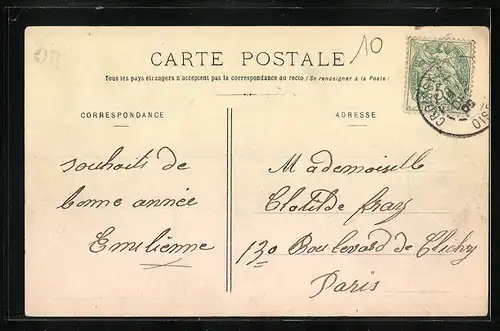 10
CARTE POSTALE
Tous les pays étrangers n'acceptent pas la correspondance au recto (Se renseigner à la Poste)
CORRESPONDANCE
ADRESSE
souhaits de
bonne année
Emilienne
Mademoiselle
Clotilde
130 Boulevard de Clichy
Paris